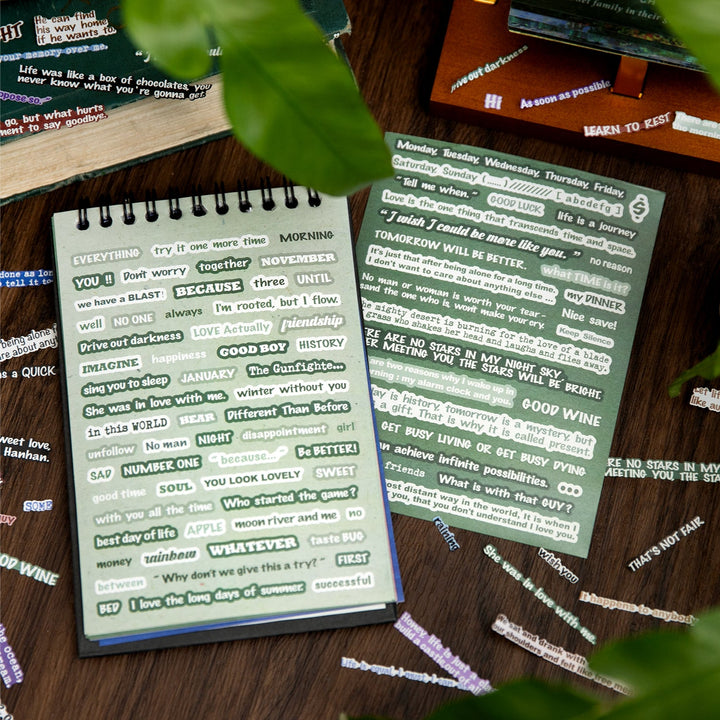 He can find
his way home
if he wants to.
your memory over me.
Life was like a box of chocolates, you
never know what you're gonna get.
go, but what hurts
ment to say goodbye.
drive out darkness
Hi
As soon as possible
LEARN TO REST
EVERYTHING try it one more time MORNING
YOU !! Don't worry together NOVEMBER
we have a BLAST! BECAUSE three UNTIL
well NO ONE always I'm rooted, but I flow.
Drive out darkness LOVE Actually friendship
IMAGINE happiness GOOD BOY HISTORY
sing you to sleep JANUARY The Gunfighte...
She was in love with me. winter without you
in this WORLD HEAR Different Than Before
unfollow No man NIGHT disappointment girl
SAD NUMBER ONE "because...." Be BETTER!
good time SOUL YOU LOOK LOVELY SWEET
with you all the time Who started the game?
best day of life APPLE moon river and me no
money rainbow WHATEVER taste BUG
between "Why don't we give this a try?" FIRST
BED I love the long days of summer. successful
Monday, Tuesday, Wednesday, Thursday, Friday,
Saturday, Sunday (......) ////////// [ abcdefg ]
"Tell me when." GOOD LUCK life is a journey
Love is the one thing that transcends time and space.
"I wish I could be more like you." no reason
TOMORROW WILL BE BETTER. what TIME is it?
It's just that after being alone for a long time,
I don't want to care about anything else ... my DINNER
No man or woman is worth your tear-
sand the one who is, won't make your cry. Nice save!
the mighty desert is burning for the love of a blade
grass who shakes her head and laughs and flies away. Keep Silence
ERE ARE NO STARS IN MY NIGHT SKY,
ER MEETING YOU THE STARS WILL BE BRIGHT.
are two reasons why I wake up in
morning : my alarm clock and you. GOOD WINE
day is history, tomorrow is a mystery, but
a gift. That is why it is called present.
GET BUSY LIVING OR GET BUSY DYING
an achieve infinite possibilities.
friends What is with that GUY?
most distant way in the world, it is when I
you, that you don't understand I love you.
done as lon
e tell it to
being alone
are about any
S A QUICK
weet love,
Hanhan.
SOME
GOOD WINE
the ocean
RE NO STARS IN MY
MEETING YOU THE STA
THAT'S NOT FAIR
raining
wish you
She was in love with me.
I happens to anybody
me sat and drank with
our shoulders and felt like free men